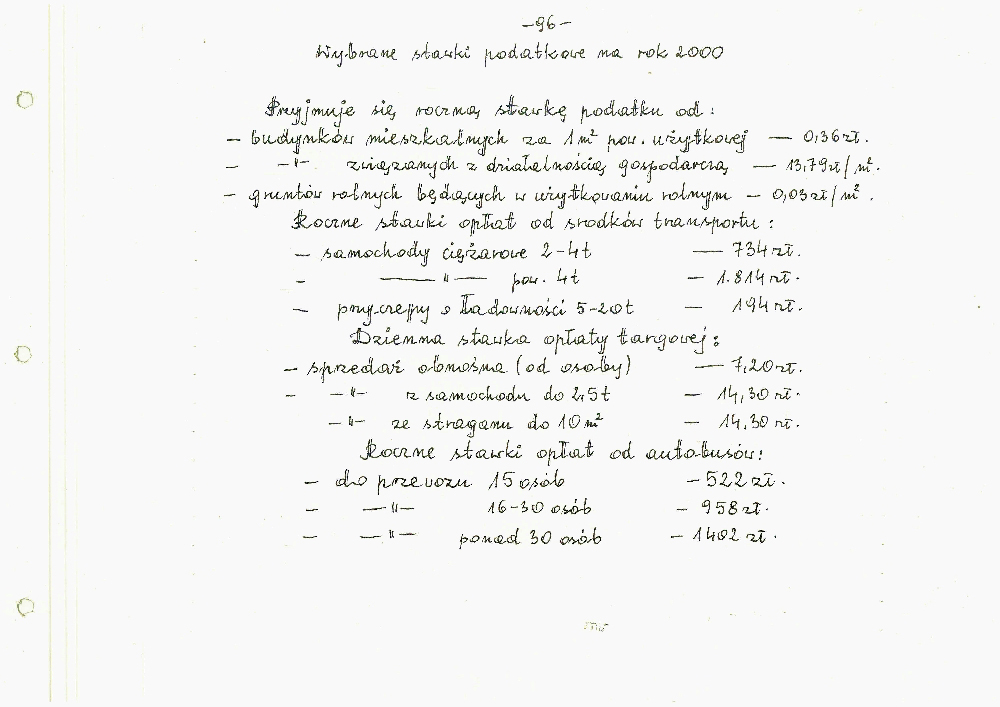 -96-
Wybrane stawki podatkowe na rok 2000
Przyjmuje się roczną stawkę podatku od:
- budynków mieszkalnych za 1m² pow. użytkowej — 0,36 zł.
- -"- związanych z działalnością gospodarczą — 13,79 zł/m².
- gruntów rolnych będących w użytkowaniu rolnym - 0,03 zł/m².
Roczne stawki opłat od srodków transportu:
- samochody ciężarowe 2-4t — 734 zł.
- —"— pow. 4t - 1.814 zł.
- przyczepy o ładowności 5-20t - 194 zł.
Dzienna stawka opłaty targowej:
- sprzedaż obnośna (od osoby) — 7,20 zł.
- -"- z samochodu do 2,5t - 14,30 zł.
-"- ze straganu do 10 m² - 14,30 zł.
Roczne stawki opłat od autobusów:
- do przewozu 15 osób - 522 zł.
- —"- 16-30 osób - 958 zł.
- —"- ponad 30 osób - 1402 zł.